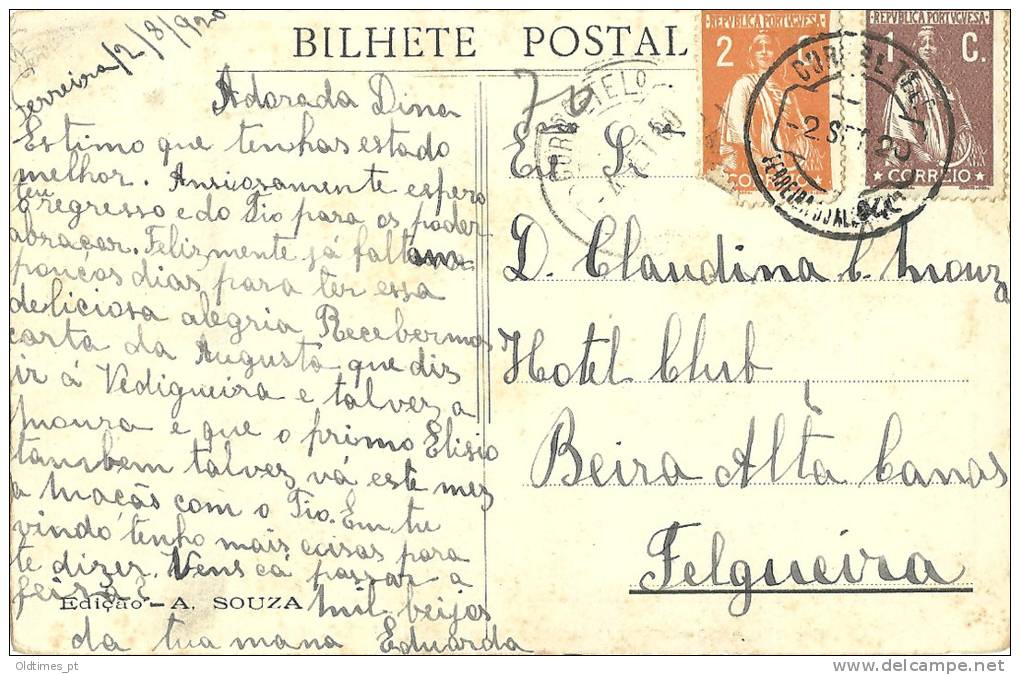 Ferreira/2/8/920
BILHETE POSTAL
Adorada Dina
Estimo que tenhas estado
melhor. Anciosamente espero
teu
regresso e do Tio para os poder
abraçar. Felizmente já faltam
poucos dias para ter essa
deliciosa alegria Recebemos
carta da Augusta que diz
ir á Vedigueira e talvez a
Moura e que o primo Elisio
tambem talvez vá este mez
a Maçãs com o Tio. Em tu
vindo tenho mais coisas para
te dizer. Vens cá passar a
feira?
Mil beijos
da tua mana Eduarda
Edição - A. SOUZA
REPVBLICA PORTVGVESA
2 C.
CORREIO
REPVBLICA PORTVGVESA
1 C.
CORREIO
-2 SET 20
70
D. Claudina C. Mouza
Hotel Club
Beira Alta Canas
Felgueira
Oldtimes_pt
www.delcampe.net